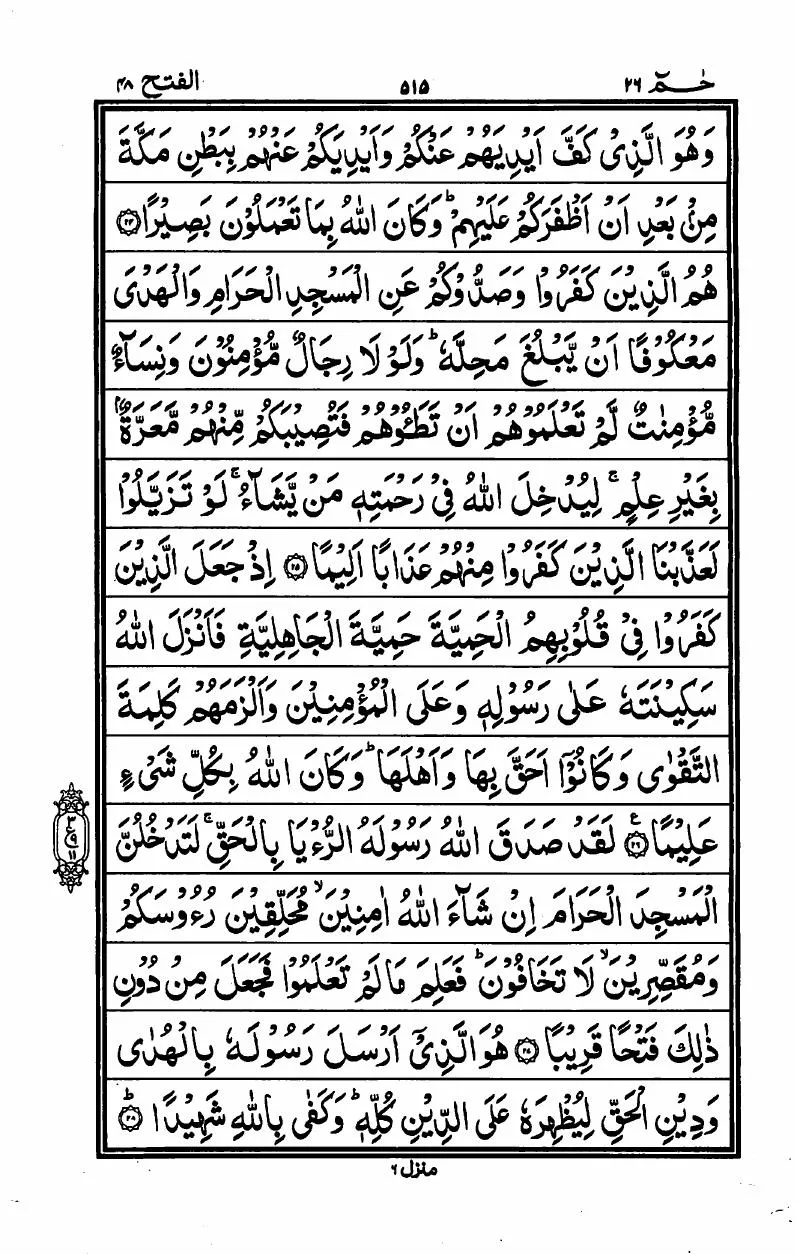 الفتح ٤٨
٥١٥
حٰـمٓ ٢٦
وَهُوَ الَّذِیْ كَفَّ اَیْدِیَهُمْ عَنْكُمْ وَاَیْدِیَكُمْ عَنْهُمْ بِبَطْنِ مَكَّةَ
مِنْۢ بَعْدِ اَنْ اَظْفَرَكُمْ عَلَیْهِمْ ؕ وَكَانَ اللّٰهُ بِمَا تَعْمَلُوْنَ بَصِیْرًا ﴿۲۴﴾
هُمُ الَّذِیْنَ كَفَرُوْا وَصَدُّوْكُمْ عَنِ الْمَسْجِدِ الْحَرَامِ وَالْهَدْیَ
مَعْكُوْفًا اَنْ یَّبْلُغَ مَحِلَّهٗ ؕ وَلَوْ لَا رِجَالٌ مُّؤْمِنُوْنَ وَنِسَآءٌ
مُّؤْمِنٰتٌ لَّمْ تَعْلَمُوْهُمْ اَنْ تَطَـُٔوْهُمْ فَتُصِیْبَكُمْ مِّنْهُمْ مَّعَرَّةٌۢ
بِغَیْرِ عِلْمٍ ۚ لِیُدْخِلَ اللّٰهُ فِیْ رَحْمَتِهٖ مَنْ یَّشَآءُ ۚ لَوْ تَزَیَّلُوْا
لَعَذَّبْنَا الَّذِیْنَ كَفَرُوْا مِنْهُمْ عَذَابًا اَلِیْمًا ﴿۲۵﴾ اِذْ جَعَلَ الَّذِیْنَ
كَفَرُوْا فِیْ قُلُوْبِهِمُ الْحَمِیَّةَ حَمِیَّةَ الْجَاهِلِیَّةِ فَاَنْزَلَ اللّٰهُ
سَكِیْنَتَهٗ عَلٰی رَسُوْلِهٖ وَعَلَی الْمُؤْمِنِیْنَ وَاَلْزَمَهُمْ كَلِمَةَ
التَّقْوٰی وَكَانُوْۤا اَحَقَّ بِهَا وَاَهْلَهَا ؕ وَكَانَ اللّٰهُ بِكُلِّ شَیْءٍ
عَلِیْمًا ﴿۲۶﴾ۧ لَقَدْ صَدَقَ اللّٰهُ رَسُوْلَهُ الرُّءْیَا بِالْحَقِّ ۚ لَتَدْخُلُنَّ
٣
ع ٩
١١
الْمَسْجِدَ الْحَرَامَ اِنْ شَآءَ اللّٰهُ اٰمِنِیْنَ ۙ مُحَلِّقِیْنَ رُءُوْسَكُمْ
وَمُقَصِّرِیْنَ ۙ لَا تَخَافُوْنَ ؕ فَعَلِمَ مَا لَمْ تَعْلَمُوْا فَجَعَلَ مِنْ دُوْنِ
ذٰلِكَ فَتْحًا قَرِیْبًا ﴿۲۷﴾ هُوَ الَّذِیْۤ اَرْسَلَ رَسُوْلَهٗ بِالْهُدٰی
وَدِیْنِ الْحَقِّ لِیُظْهِرَهٗ عَلَی الدِّیْنِ كُلِّهٖ ؕ وَكَفٰی بِاللّٰهِ شَهِیْدًا ﴿ؕ۲۸﴾
منزل ٦